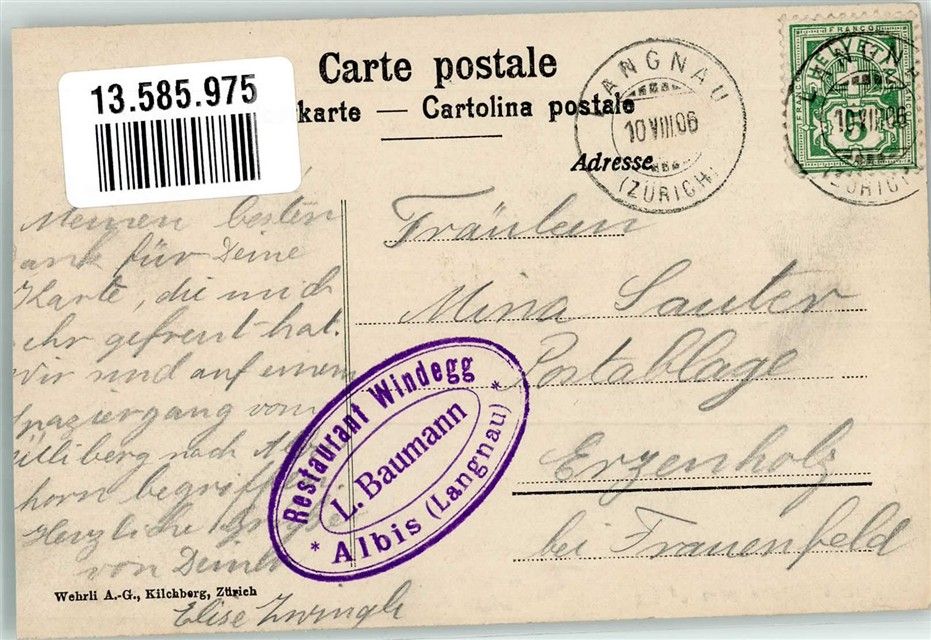 13.585.975
Carte postale
karte — Cartolina postale
Adresse
LANGNAU
10 VIII 06
(ZÜRICH)
FRANCO
HELVETIA
5
LANGNAU
10 VIII 06
(ZÜRICH)
Meinen besten
ank für Deine
Karte, die mich
ehr gefreut hat.
Wir sind auf einem
paziergang vom
Ütliberg nach
horn begriffen
Herzliche
von Deiner
Elise Zwingli
Fräulein
Mina Sauter
Postablage
Erzenholz
bei Frauenfeld
Restaurant Windegg
L. Baumann
* Albis (Langnau) *
Wehrli A.-G., Kilchberg, Zürich